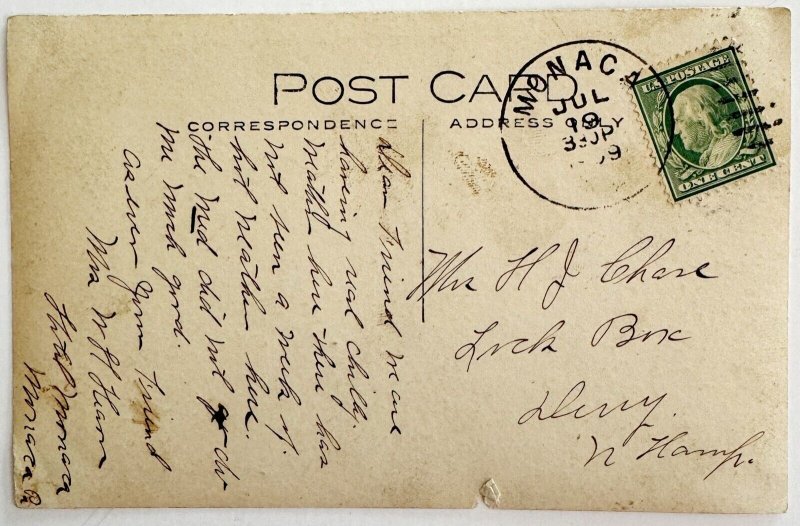 POST CARD
CORRESPONDENCE
ADDRESS ONLY
MONACA
JUL
9
330P
09
U.S. POSTAGE
ONE CENT
Dear Friend we are
haveing real chilly
Wather here there has
not been a week of
hot Weather here.
the Mud did not do
me Much good.
as ever your Friend
Mrs W H
Hotel Monaca
Monaca Pa
Mrs H J Chase
Lock Box
Derry.
N Hamp.